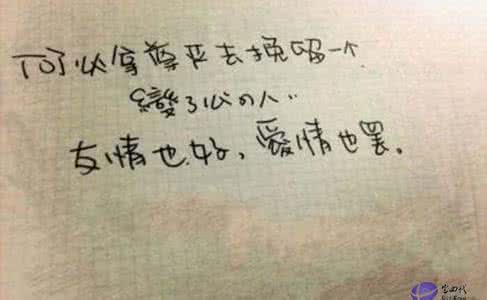 何必拿尊严去挽留一个
變了心の人..
友情也好,爱情也罢。
宝四代